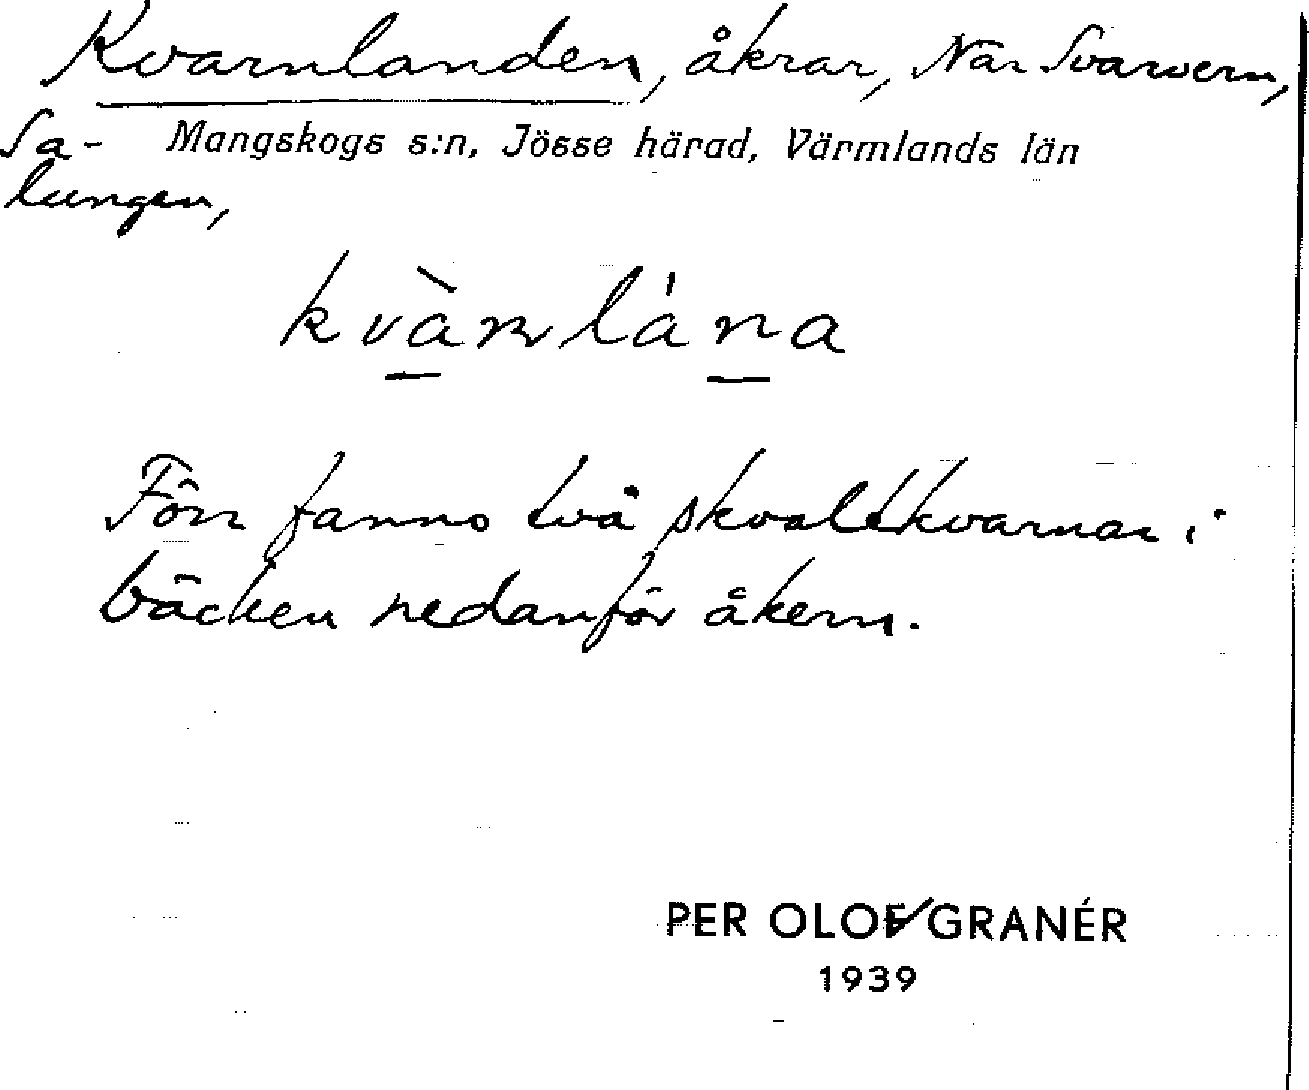 Kvarnlanden, åkrar, När Svarvern,
Sa- Mangskogs s:n, Jösse härad, Värmlands län
lungen,
kvàrnlána
Förr fanns två skvaltkvarnar i
bäcken nedanför åkern.
PER OLOF GRANÉR
1939